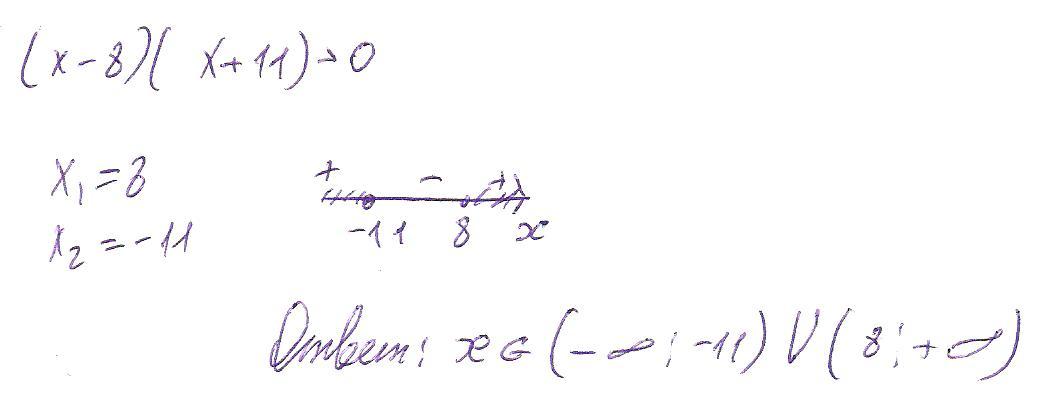 (x-8)(x+11)>0
x₁=8
+ - +
x₂=-11
-11 8 x
Ответ: x∈(-∞;-11)∪(8;+∞)